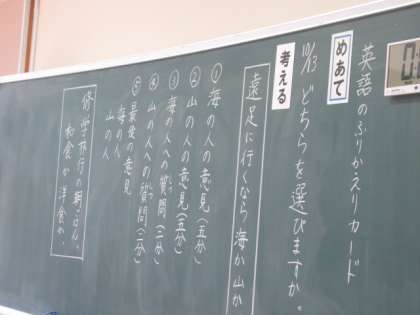 英語のふりかえりカード
めあて
10/13 どちらを選びますか。
考える
遠足に行くなら 海か山か
① 海の人の意見(五分)
② 山の人の意見(五分)
③ 海の人への質問(二分)
④ 山の人への質問(二分)
⑤ 最後の意見
海の人
山の人
修学旅行の朝ごはん、
和食か洋食か。